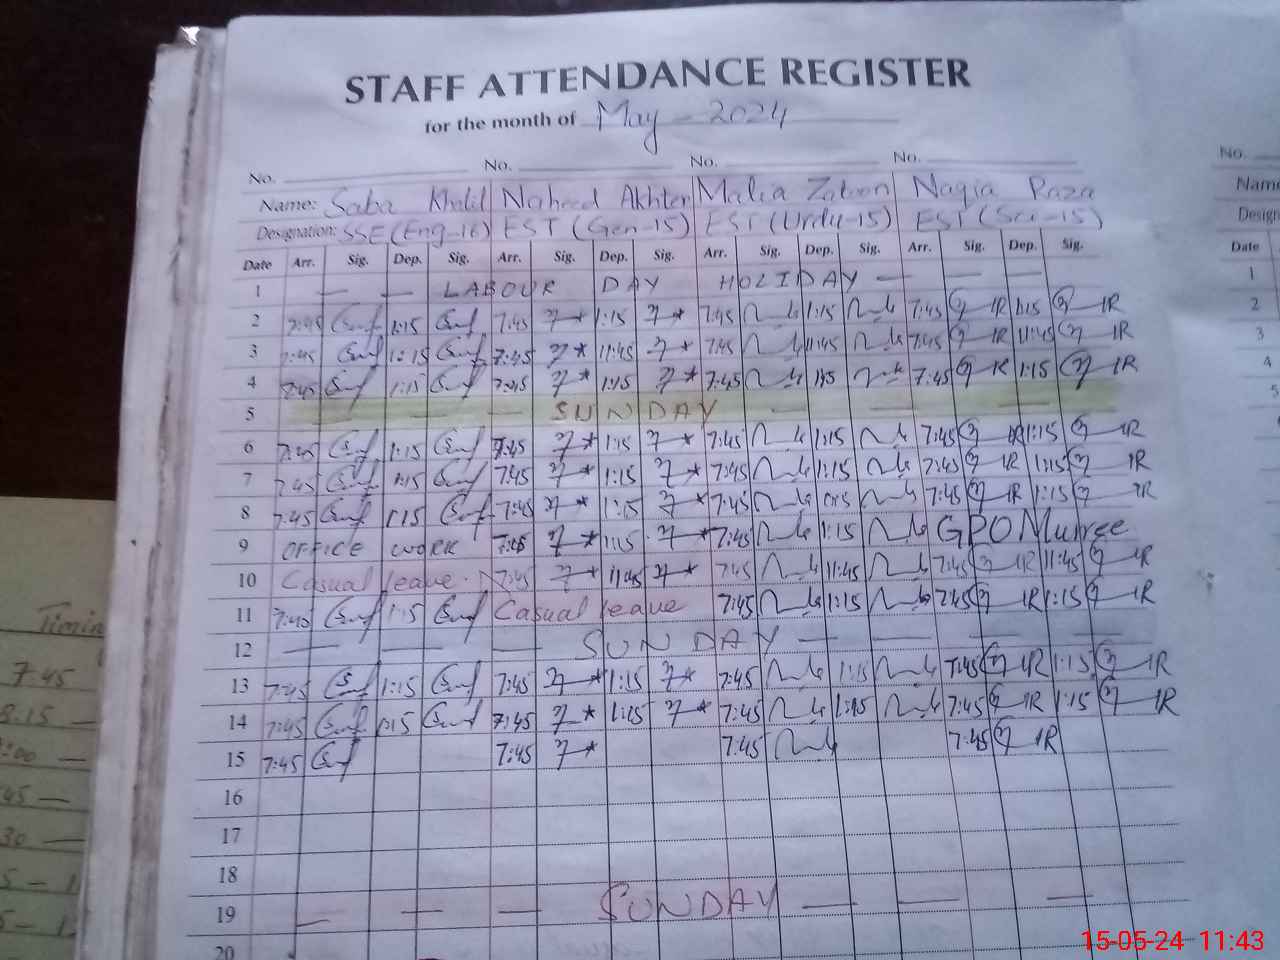 STAFF ATTENDANCE REGISTER
for the month of May - 2024
No. No. No. No.
Name: Saba Khalil Naheed Akhter Malia Zatoon Naqia Raza
Designation: SSE (Eng-16) EST (Gen-15) EST (Urdu-15) EST (Sci-15)
Date Arr. Sig. Dep. Sig. Arr. Sig. Dep. Sig. Arr. Sig. Dep. Sig. Arr. Sig. Dep. Sig.
1 — — LABOUR DAY HOLIDAY — — —
2 7:45 1:15 7:45 1:15 7:45 1:15 7:45 1:15
3 7:45 1:15 7:45 11:45 7:45 11:45 7:45 11:45
4 7:45 1:15 7:45 1:15 7:45 1:15 7:45 1:15
5 — — — SUNDAY — — —
6 7:45 1:15 7:45 1:15 7:45 1:15 7:45 1:15
7 7:45 1:15 7:45 1:15 7:45 1:15 7:45 1:15
8 7:45 1:15 7:45 1:15 7:45 1:15 7:45 1:15
9 OFFICE WORK 7:45 1:15 7:45 1:15 GPO Murree
10 Casual leave. 7:45 11:45 7:45 11:45 7:45 11:45
11 7:40 1:15 Casual leave 7:45 1:15 7:45 1:15
12 — — — SUNDAY — — — —
13 7:45 1:15 7:45 1:15 7:45 1:15 7:45 1:15
14 7:45 1:15 7:45 1:15 7:45 1:15 7:45 1:15
15 7:45 7:45 7:45 7:45
16
17
18
19 — — — SUNDAY — — —
20
No.
Name
Date
1
2
3
4
5
Timin
7:45
8:15 —
:00 —
45 —
30 —
5 – 1
5 – 1
15-05-24 11:43